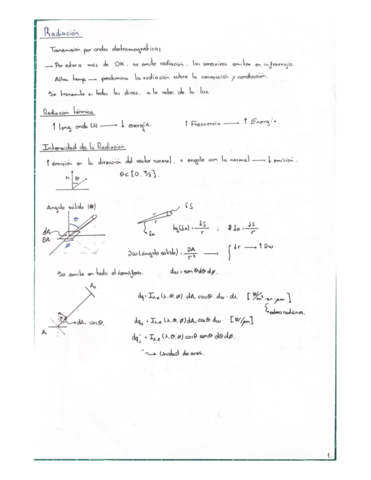 Radiación
Transmisión por ondas electromagnéticas
→ Por estar a más de 0K, se emite radiación. Los emiten en infrarrojo.
Altas temp → predomina la radiación sobre la convección y conducción.
Se transmite en todas las direc. a la veloc. de la luz.
Radiación térmica
↑ long. onda (λ) → ↓ energía. ↑ Frecuencia → ↑ Energía
Intensidad de la Radiación
↑ emisión en la dirección del vector normal, + angulo con la normal → ↓ emisión.
n θ θ ∈ [0, π/2]
Angulo sólido
dA
dω (ángulo sólido) = DA/r² → { ↓r → ↑dω
Se emite en todo el hemisferio. dω = senθ dθ dφ
dq = I (λ, θ, φ) dA₁ cosθ · dω · dλ
dA₁ cosθ
dq = I (λ, θ, φ) dA₁ cosθ dω [W/μm]
dq = I (λ, θ, φ) cosθ senθ dθ dφ
→ Unidad de area.
1.